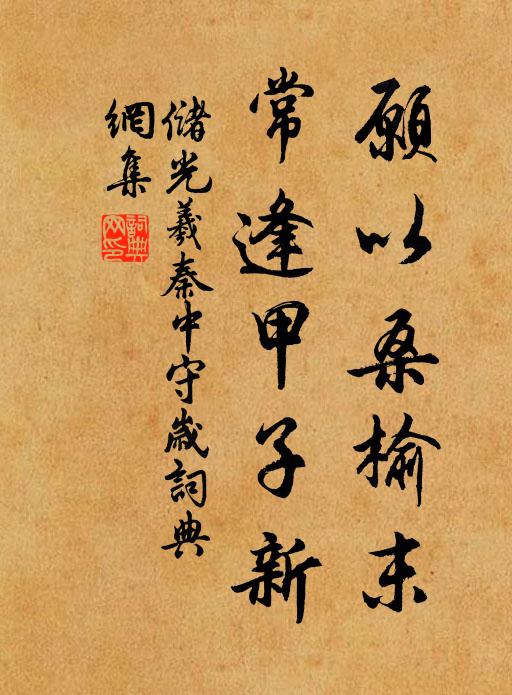 願以桑榆末
常逢甲子新
儲光羲秦中守歲詞典
網集
詞典
网印